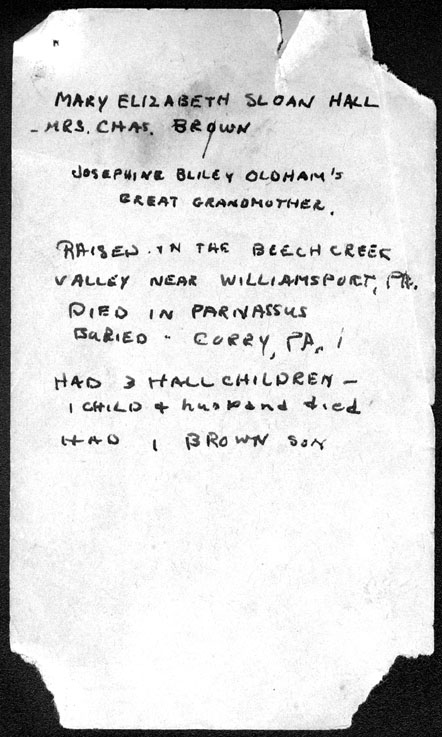 MARY ELIZABETH SLOAN HALL
- MRS. CHAS. BROWN
JOSEPHINE BLILEY OLDHAM'S
GREAT GRANDMOTHER.
RAISED IN THE BEECH CREEK
VALLEY NEAR WILLIAMSPORT, PA.
DIED IN PARNASSUS
BURIED - CORRY, PA.
HAD 3 HALL CHILDREN -
1 CHILD & husband died
HAD 1 BROWN SON